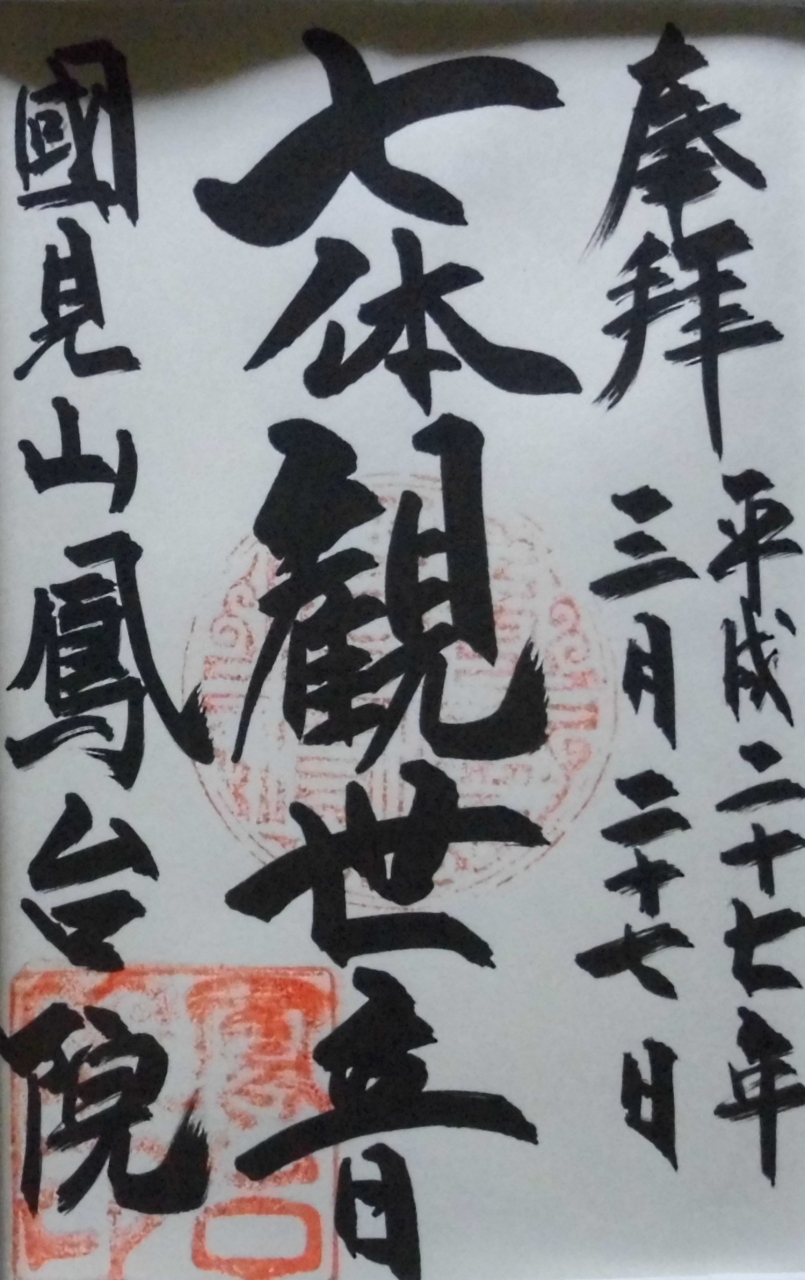 奉拝
平成二十七年
三月二十七日
七体観世音
國見山鳳台院